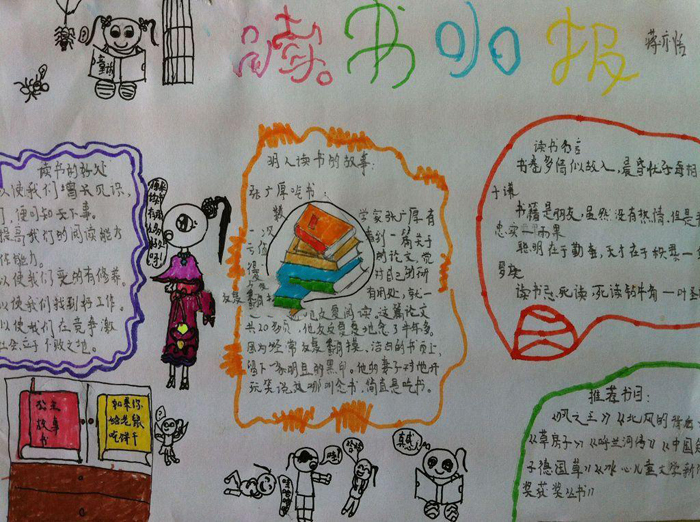 读书小报
蒋亦恬
读书的好处
以使我们增长见识,
门,便可知天下事。
提高我们的阅读能力
作能力。
以使我们变的有修养。
以使我们找到好工作。
以使我们在竞争激
立于不败之地。
名人读书的故事:
张广厚吃书:
数学家张广厚有
一次看到一篇关于
的论文,觉
对自己的研
有用处,就一
反复阅读。这篇论文
共20多页,他反反复复地念了半年多。
因为经常反复翻摸,洁白的书页上,
留下一条明显的黑印。他的妻子对他开
玩笑说,这哪叫念书,简直是吃书。
读书名言
书卷多情似故人,晨昏忧乐每相
于谦
书籍是朋友,虽然没有热情,但是
忠实 雨果
聪明在于勤奋,天才在于积累
罗庚
读书忌死读,死读钻牛角 叶
推荐书目:
《风之王》《北风的
《草房子》《呼兰河传》《中国
子德国草》《冰心儿童文学新
奖获奖丛书》
公主
故事
书
如果你
给老鼠
吃饼干